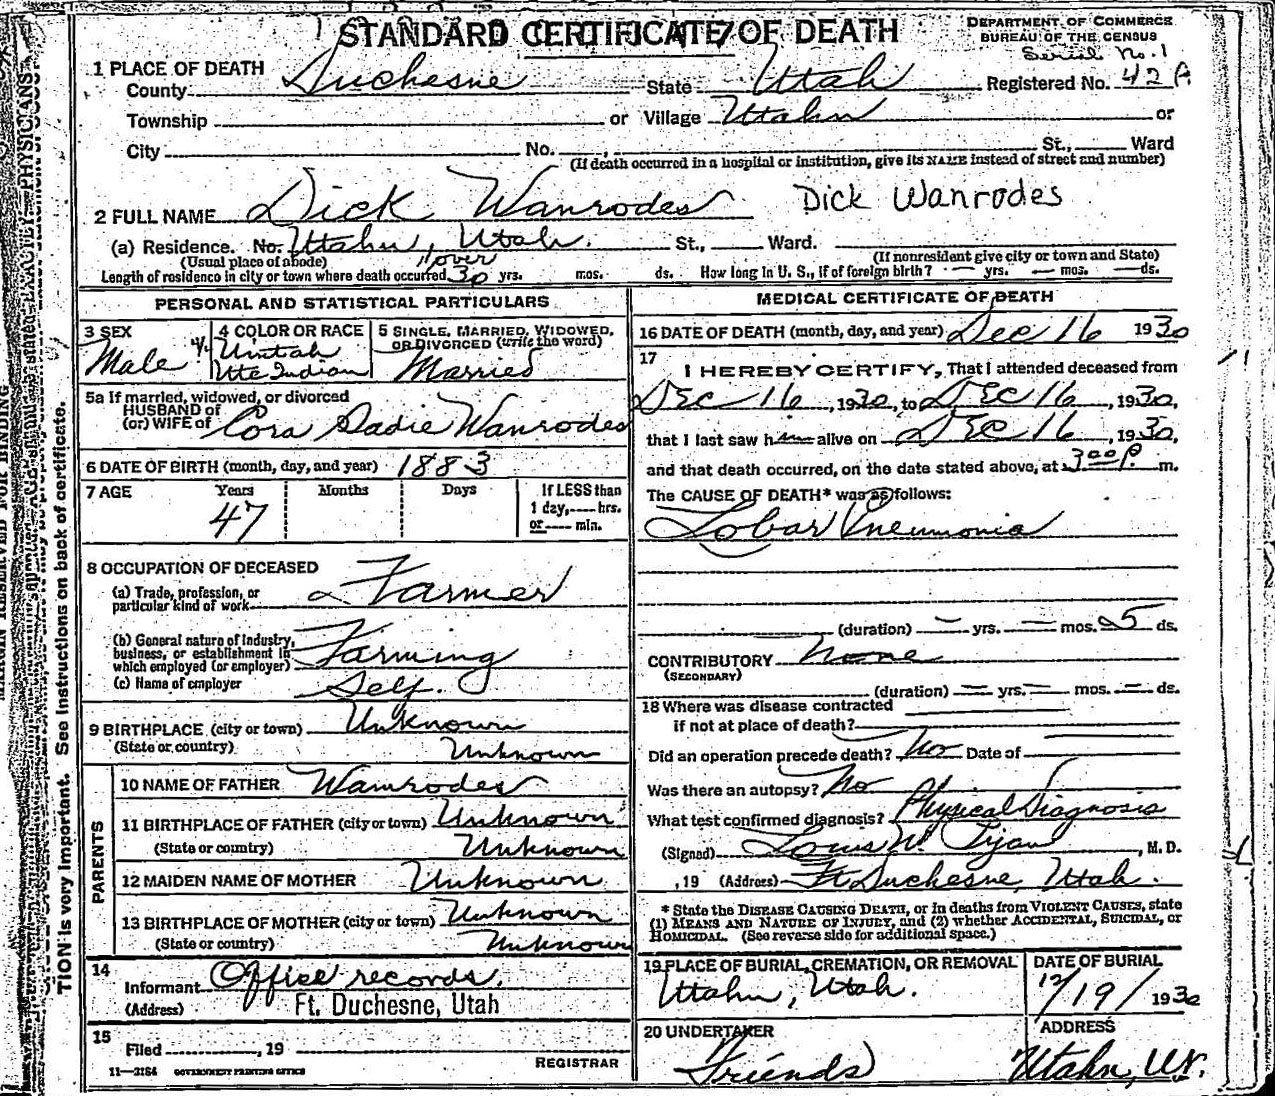 STANDARD CERTIFICATE OF DEATH
DEPARTMENT OF COMMERCE
BUREAU OF THE CENSUS
Serial No. 1
1 PLACE OF DEATH
County Duchesne State Utah Registered No. 42 A
Township or Village Utahn or
City No. St., Ward
(If death occurred in a hospital or institution, give its NAME instead of street and number)
2 FULL NAME Dick Wanrodes Dick Wanrodes
(a) Residence. No. Utahn, Utah. St., Ward.
(Usual place of abode) (If nonresident give city or town and State)
Length of residence in city or town where death occurred over 30 yrs. mos. ds. How long in U. S., if of foreign birth? — yrs. — mos. — ds.
PERSONAL AND STATISTICAL PARTICULARS
3 SEX
Male
4 COLOR OR RACE
Uintah
Ute Indian
5 SINGLE, MARRIED, WIDOWED,
OR DIVORCED (write the word)
Married
5a If married, widowed, or divorced
HUSBAND of
(or) WIFE of Cora Sadie Wanrodes
6 DATE OF BIRTH (month, day, and year) 1883
7 AGE Years Months Days If LESS than
47 1 day, hrs.
or min.
8 OCCUPATION OF DECEASED
(a) Trade, profession, or
particular kind of work Farmer
(b) General nature of industry,
business, or establishment in
which employed (or employer) Farming
(c) Name of employer Self.
9 BIRTHPLACE (city or town) Unknown
(State or country) Unknown
PARENTS
10 NAME OF FATHER Wanrodes
11 BIRTHPLACE OF FATHER (city or town) Unknown
(State or country) Unknown
12 MAIDEN NAME OF MOTHER Unknown
13 BIRTHPLACE OF MOTHER (city or town) Unknown
(State or country) Unknown
14
Informant Office records.
(Address) Ft. Duchesne, Utah
15
Filed , 19
REGISTRAR
11—3184 GOVERNMENT PRINTING OFFICE
MEDICAL CERTIFICATE OF DEATH
16 DATE OF DEATH (month, day, and year) Dec 16 1930
17
I HEREBY CERTIFY, That I attended deceased from
DEC 16, 1930, to DEC 16, 1930,
that I last saw him alive on DEC 16, 1930,
and that death occurred, on the date stated above, at 3 00 P. m.
The CAUSE OF DEATH* was as follows:
Lobar Pneumonia
(duration) — yrs. — mos. 5 ds.
CONTRIBUTORY None
(SECONDARY)
(duration) — yrs. — mos. — ds.
18 Where was disease contracted
if not at place of death?
Did an operation precede death? No Date of
Was there an autopsy? No
What test confirmed diagnosis? Physical Diagnosis
(Signed) Louis , M. D.
, 19 (Address) Ft Duchesne, Utah.
* State the DISEASE CAUSING DEATH, or in deaths from VIOLENT CAUSES, state
(1) MEANS AND NATURE OF INJURY, and (2) whether ACCIDENTAL, SUICIDAL, or
HOMICIDAL. (See reverse side for additional space.)
19 PLACE OF BURIAL, CREMATION, OR REMOVAL
Utahn, Utah.
DATE OF BURIAL
12/19/ 1930
20 UNDERTAKER
Friends
ADDRESS
Utahn, Ut.
MARGIN RESERVED FOR BINDING
TION is very important. See instructions on back of certificate.